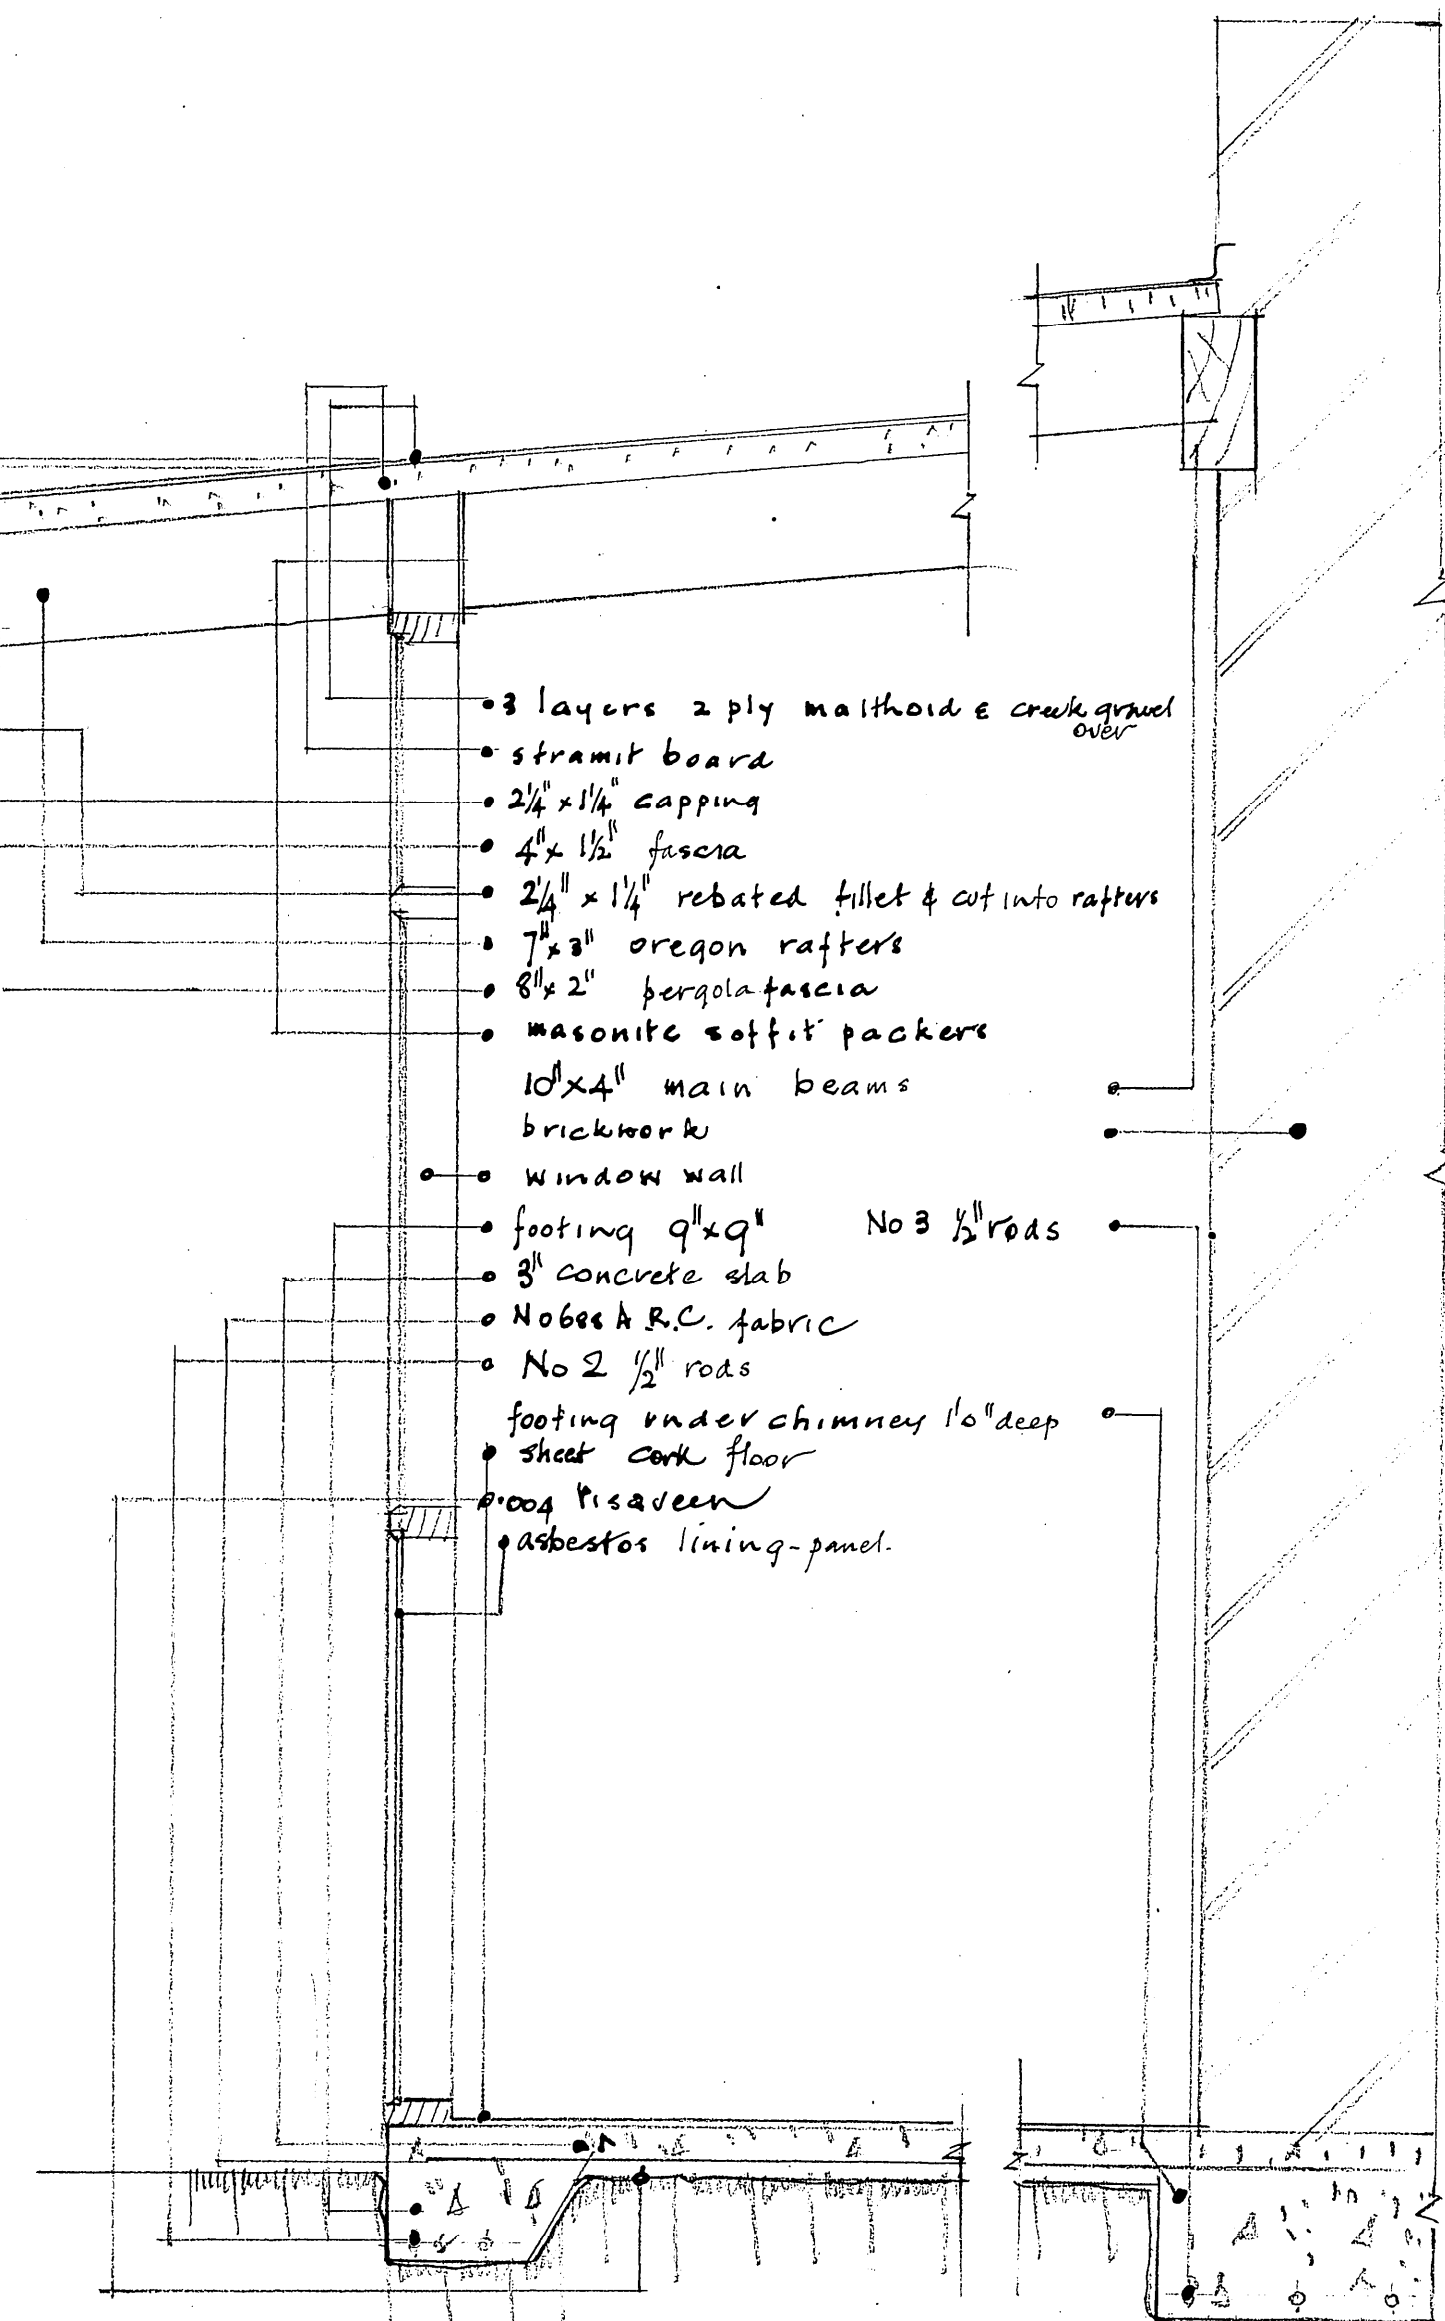 3 layers 2 ply malthoid & creek gravel
over
stramit board
2¼" x 1¼" capping
4" x 1½" fascia
2¼" x 1¼" rebated fillet & cut into rafters
7" x 3" oregon rafters
8" x 2" pergola fascia
masonite soffit packers
10" x 4" main beams
brickwork
window wall
footing 9" x 9" No 3 ½" rods
3" concrete slab
No 688 A.R.C. fabric
No 2 ½" rods
footing under chimney 1'0" deep
sheet cork floor
.004 Visqueen
asbestos lining-panel.